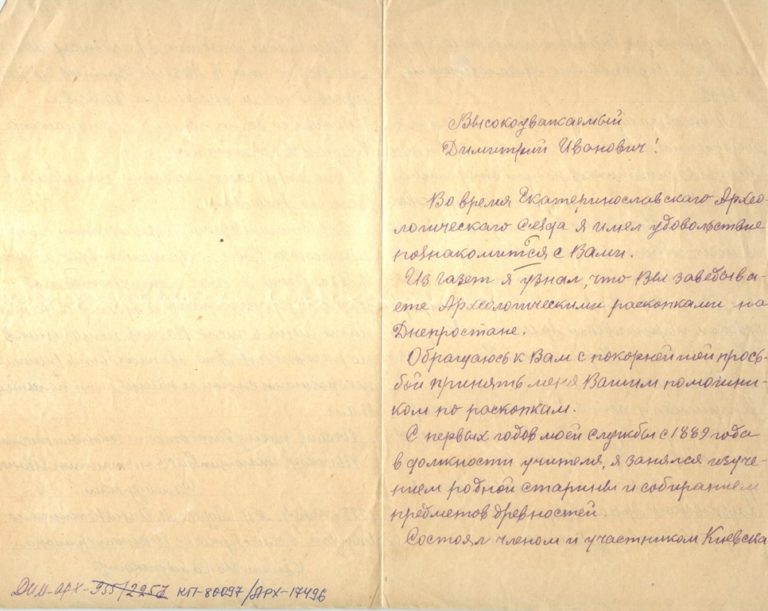 Высокоуважаемый
Димитрий Иванович!
Во время Екатеринославского Архео-
логического Съезда я имел удовольствие
познакомится с Вами.
Из газет я узнал, что Вы заведыва-
ете Археологическими раскопками на
Днепростане.
Обращаюсь к Вам с покорнейшой прось-
бой принять меня Вашим помощни-
ком по раскопкам.
С первых годов моей службы с 1889 года
в должности учителя, я занялся изуче-
нием родной старины и собиранием
предметов древностей.
Состоял членом и участником Киевска
КП-86097/АРХ-17496